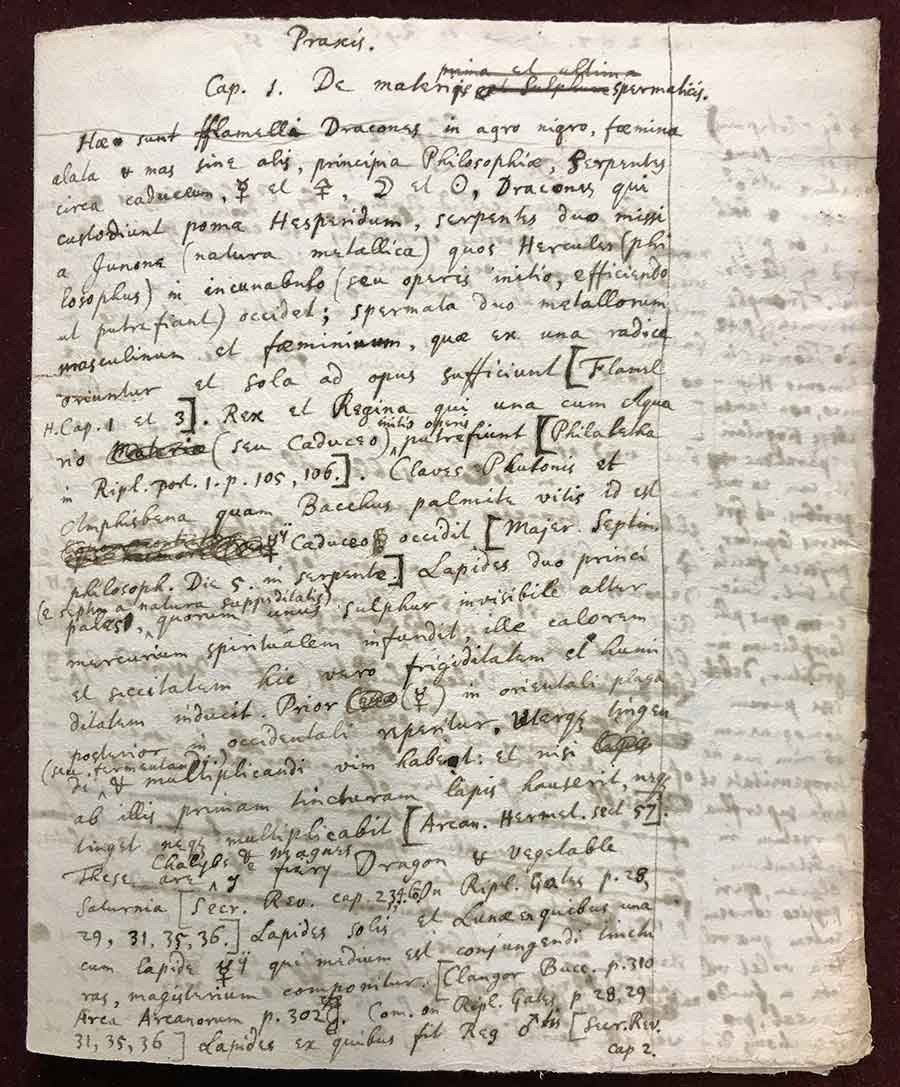 Praxis.
prima et ultima
Cap. 1. De materijs et Sulphure spermaticis.
Hae sunt fflamelli Dracones in agro nigro, fœmina
alata & mas sine alis, principia Philosophiæ, Serpentes
circa caduceum, ☿ et 🜍, ☽ et ☉, Dracones qui
custodiunt poma Hesperidum, serpentes duo missi
a Junone (natura metallica) quos Hercules (phi
losophus) in incunabulo (seu operis initio, efficiendo
ut putrefiant) occidet; spermata duo metallorum
masculinum et fœmininum, quæ ex una radice
oriuntur et sola ad opus sufficiunt [Flamel
H. Cap. 1 et 3]. Rex et Regina qui una cum Aqua
rio (seu Caduceo) initio operis putrefiunt [Philaletha
in Ripl. port. 1. p. 105, 106.]. Claves Plutonis et
Amphisbena quam Bacchus palmite vitis id est
☿ij Caduceo occidit [Majer. Septim.
philosoph. Die 5. in serpente.] Lapides duo princi
(e septem a natura suppeditatis)
pales, quorum unus sulphur invisibile alter
mercurium spiritualem infundit, ille calorem
et siccitatem hic vero frigiditatem et humi
ditatem inducit. Prior (☿) in orientali plaga
posterior in occidentali reperitur. Uterqꝫ tingen
(seu fermentandi)
di & multiplicandi vim habet: et nisi
ab illis primam tincturam lapis hauserit, neqꝫ
tinget neqꝫ multiplicabit [Arcan. Hermet. sect 57].
Chalybs & magnes
These are yͤ fiery Dragon & vegetable
Saturnia [Secr. Rev. cap. 2,3,4. Com. on Ripl. Gates p. 28,
29, 31, 35, 36.] Lapides solis et Lunæ e quibus una
cum lapide ☿ij qui medium est conjungendi tinctu
ras, magisterium componitur. [Clangor Bucc. p. 310
Arca Arcanorum p. 302]. Com. on Ripl. Gates, p 28, 29
31, 35, 36] Lapides ex quibus fit Reg ♂tis [Secr. Rev.
cap 2.